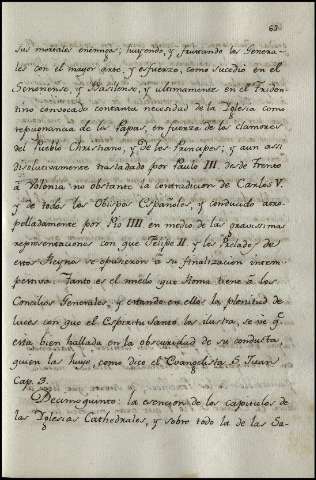 63
sus mortales enemigos; huyendo, y frustando los Genera-
les con el mayor arte, y esfuerzo, como sucedio en el
Senonense, y Basilense, y ultimamente en el Triden-
tino convocado contanta necesidad de la Iglesia como
repugnancia de los Papas, en fuerza de los clamores
del Pueblo Christiano, y de los Principes; y aun assi
disolucivamente trasladado por Paulo III. desde Trento
à Bolonia no obstante la contradicion de Carlos V.
y de todos los Obispos Españoles, y conducido atro-
pelladamente por Pio IIII en medio de las gravissimas
representaciones con que Felipe II y los Prelados de
estos Reynos se opusieron à su finalizacion intem-
pestiva. Tanto es el miedo que Roma tiene à los
Concilios Generales, y estando en ellos la plenitud de
luces con que el Espiritu Santo los ilustra, se vè q.e
esta bien hallada en la obscuridad de su conducta,
quien las huye, como dice el Evangelista S. Juan
Cap. 3.
Decimoquinto: la esencion de los capitulos de
las Iglesias Cathedrales, y sobre todo la de las Sa-